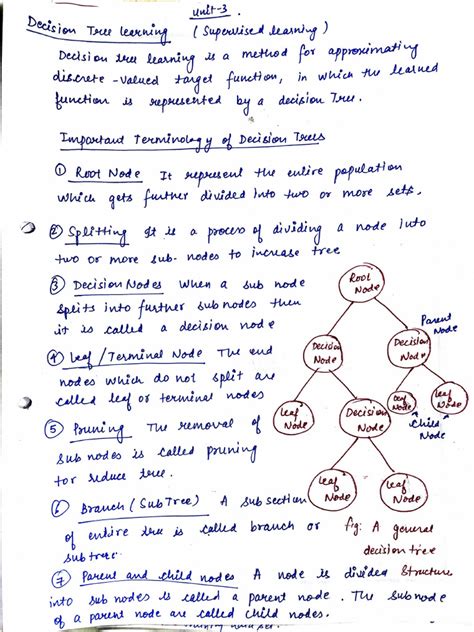 Unit-3
Decision Tree learning (Supervised learning)
Decision tree learning is a method for approximating
discrete-valued target function, in which the learned
function is represented by a decision Tree.
Important Terminology of Decision Trees
① Root Node It represent the entire population
which gets further divided into two or more sets.
② Splitting It is a process of dividing a node into
two or more sub-nodes to increase tree
③ Decision Nodes When a sub node
splits into further sub nodes then
it is called a decision node
④ Leaf/Terminal Node The end
nodes which do not split are
called leaf or terminal nodes
⑤ Pruning The removal of
sub nodes is called pruning
to reduce tree.
⑥ Branch (SubTree) A sub section
of entire tree is called branch or
subtree.
⑦ Parent and child nodes A node is divided
into sub nodes is called a parent node. The sub node
of a parent node are called child nodes.
Root
Node
Parent
Node
Decision
Node
Decision
Node
Leaf
Node
Decision
Node
Leaf
Node
Leaf
Node
child
Node
Leaf
Node
Leaf
Node
fig: A general
decision tree
Structure